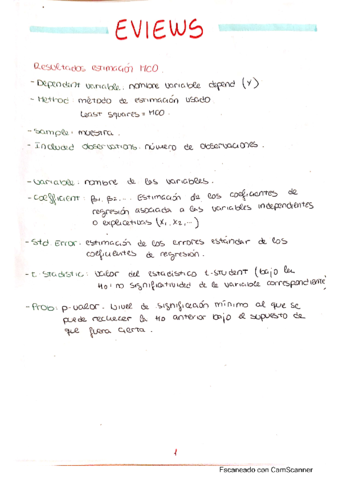 EVIEWS
Resultados estimación MCO
- Dependent variable: nombre variable depend (Y)
- Method: método de estimación usado
Least squares = MCO
- Sample: muestra.
- Included observations: número de observaciones.
- Variable: nombre de las variables.
- Coefficient: β1, β2... Estimación de los coeficientes de
regresión asociada a las variables independientes
o explicativas (X1, X2, ...)
- Std. Error: estimación de los errores estándar de los
coeficientes de regresión.
- t. Statistic: valor del estadístico t-student (bajo la
H0: no significatividad de la variable correspondiente
- Prob: p-valor. Nivel de significación mínimo al que se
puede rechazar la H0 anterior bajo el supuesto de
que fuera cierta.
1
Escaneado con CamScanner